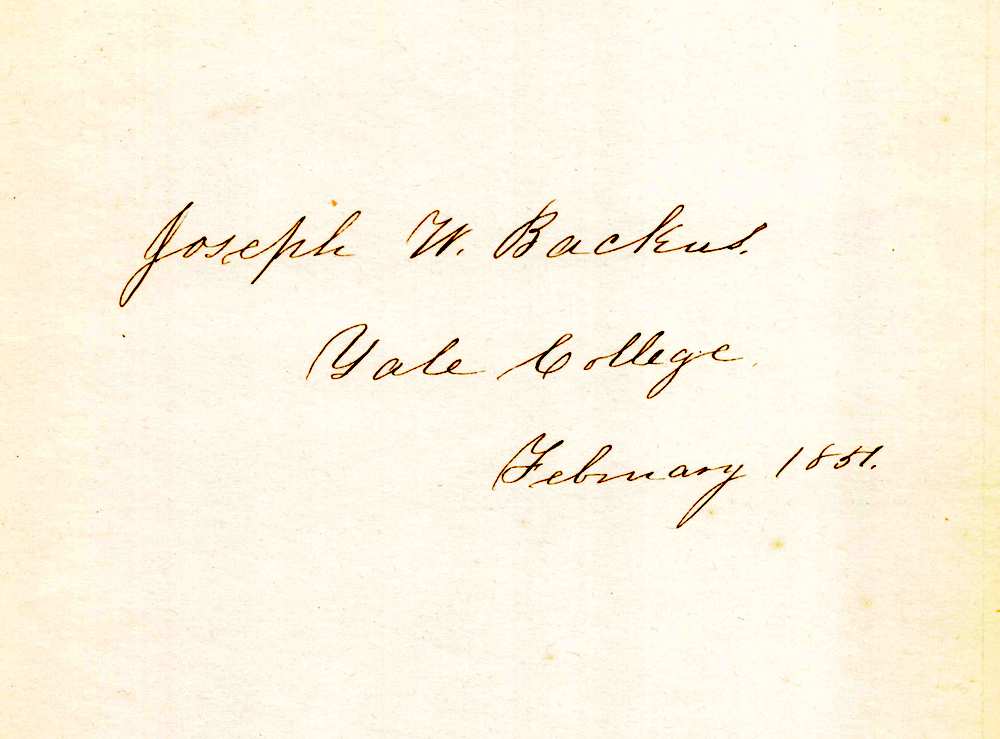 Joseph W. Backus.
Yale College.
February 1851.